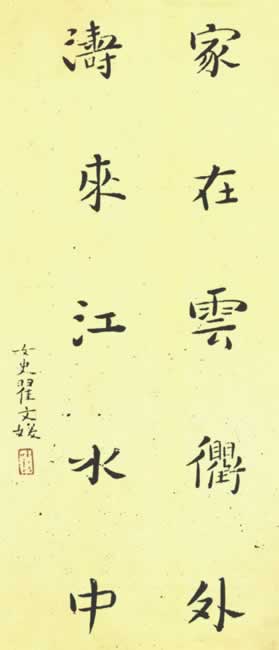 家在雲衢外
濤來江水中
女史翟文媛